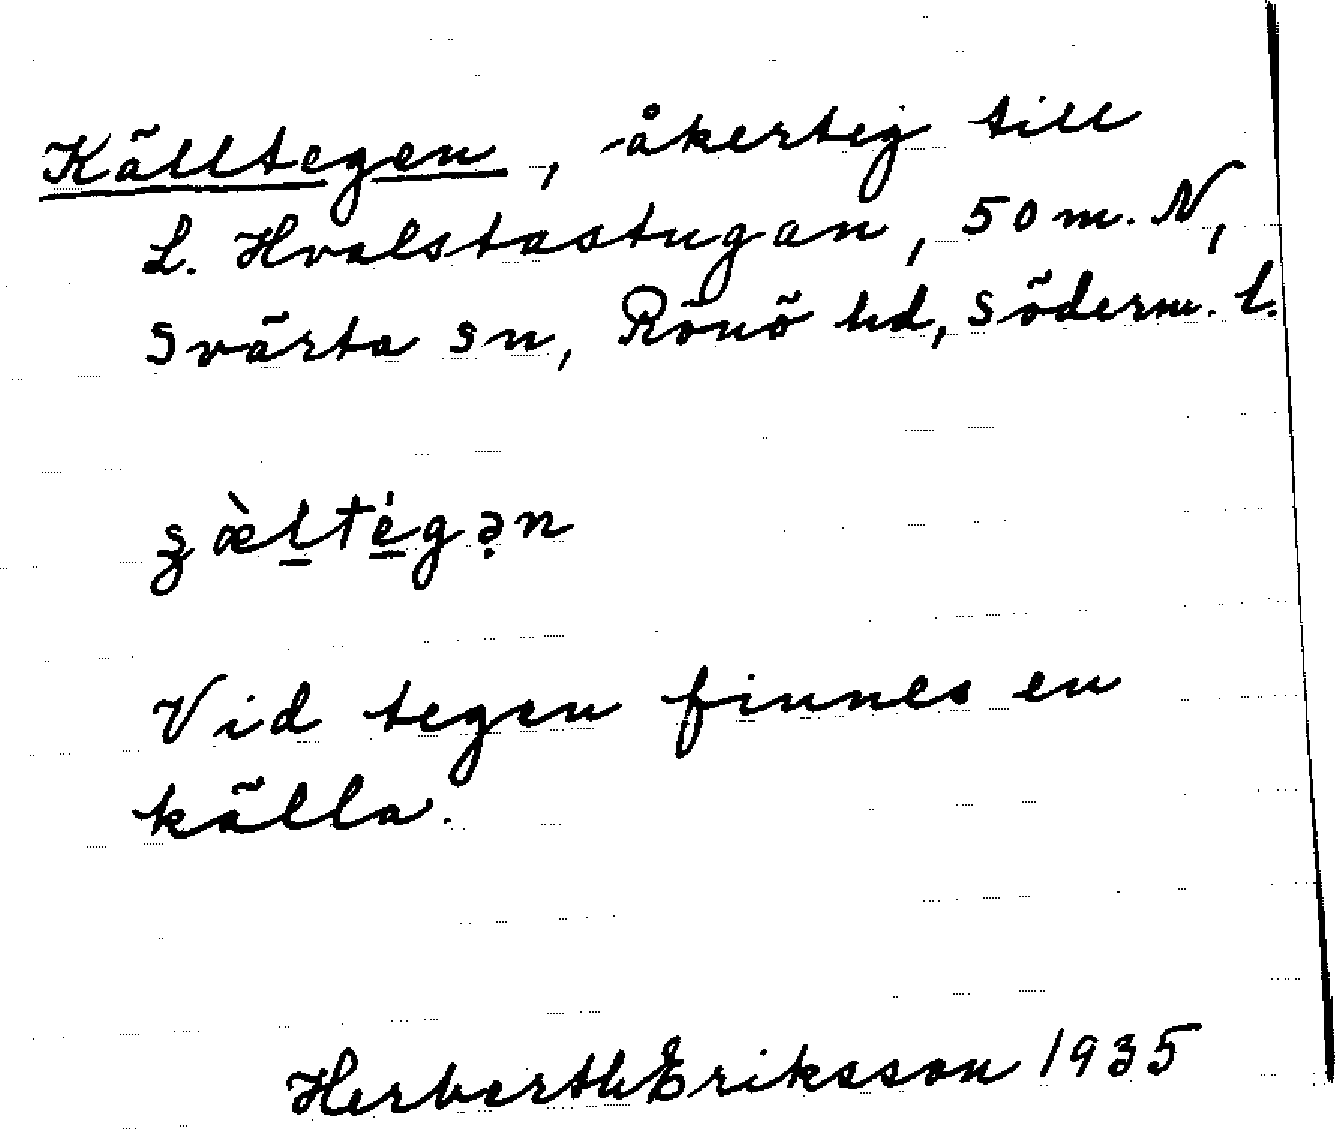 Källtegen, åkerteg till
L. Hvalstastugan, 50 m. N,
Svärta sn, Rönö hd, Söderm. l.
Vid tegen finnes en
källa.
Herberth Eriksson 1935